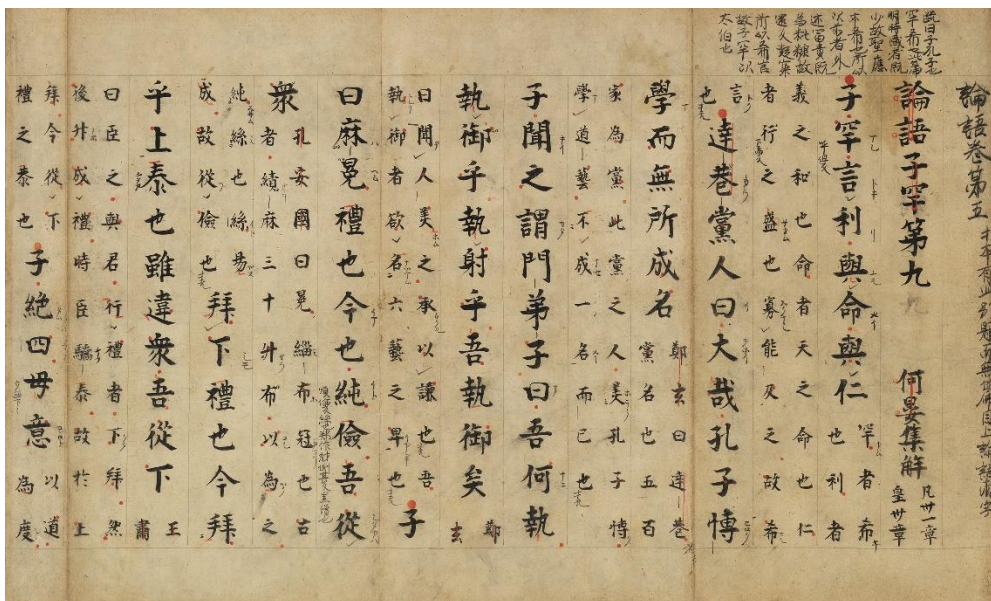 疏曰子孔子也
罕希也此篇
明時感者既
少故聖應
本希也所以
次前者外
述富貴既
為粃糠故
還反凝寂
所以希言
故子罕次
太伯也
論語卷第五
論語子罕第九 何晏集解 凡卅一章 皇卅章
子罕言利與命與仁 罕者希也利者
義之和也命者天之命也仁
者行之盛也寡能及之故希
言也 達巷黨人曰大哉孔子博
學而無所成名 鄭玄曰達巷黨名也五百
家為黨此黨之人美孔子博
學道藝不成一名而已也
子聞之謂門弟子曰吾何執
執御乎執射乎吾執御矣 鄭玄
曰聞人美之承以謙也吾
執御者欲名六藝之卑也 子
曰麻冕禮也今也純儉吾從
衆 孔安國曰冕緇布冠也古
者績麻三十升布以為之
純絲也絲易成故從儉也 拜下禮也今拜
乎上泰也雖違衆吾從下 王肅
曰臣之與君行禮者下拜然
後升成禮時臣驕泰故於上
拜今從下禮之泰也 子絶四毋意 以道為度